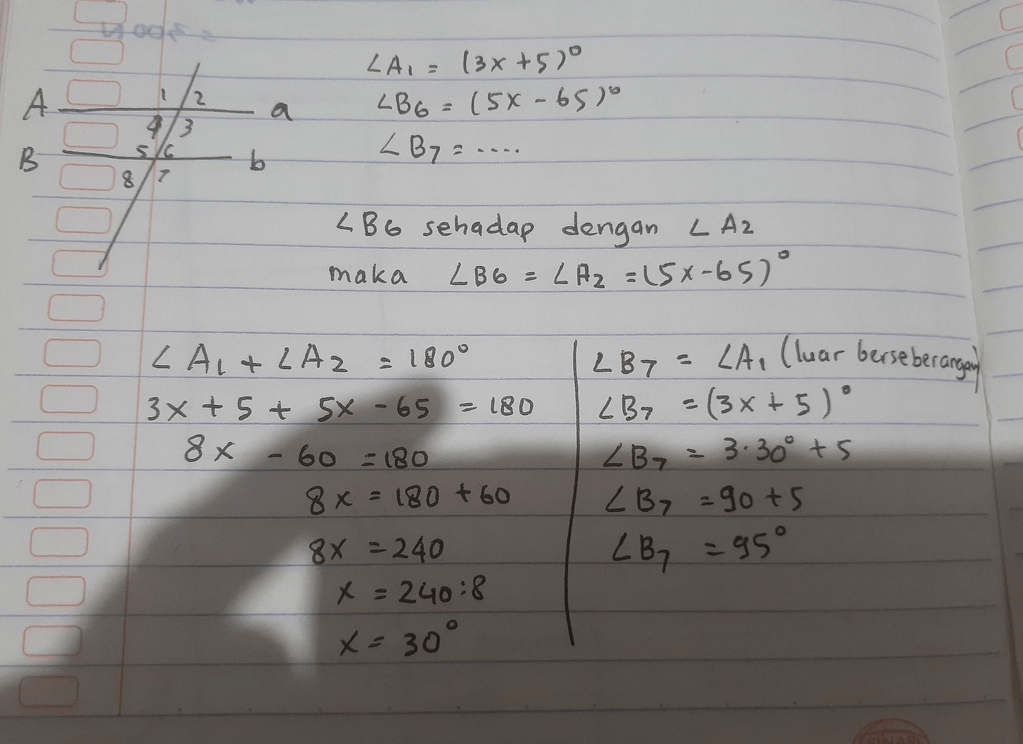 ∠A₁ = (3x+5)°
∠B6 = (5x - 65)°
∠B7 = ....
A 1 2 a
4 3
B 5 6 b
8 7
∠B6 sehadap dengan ∠A2
maka ∠B6 = ∠A2 = (5x-65)°
∠A₁ + ∠A2 = 180°
3x + 5 + 5x - 65 = 180
8x - 60 = 180
8x = 180 + 60
8x = 240
x = 240:8
x = 30°
∠B7 = ∠A₁ (luar berseberangan)
∠B7 = (3x + 5)°
∠B7 = 3·30° + 5
∠B7 = 90 + 5
∠B7 = 95°